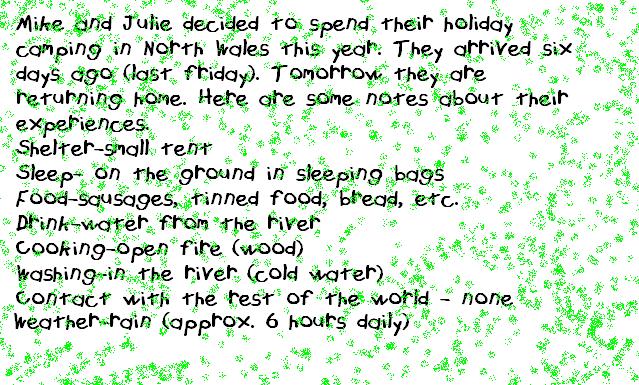 Mike and Julie decided to spend their holiday
camping in North Wales this year. They arrived six
days ago (last friday). Tomorrow they are
returning home. Here are some notes about their
experiences.
Shelter-small tent
Sleep- on the ground in sleeping bags
Food-sausages, tinned food, bread, etc.
Drink-water from the river
Cooking-open fire (wood)
Washing-in the river (cold water)
Contact with the rest of the world - none
Weather-rain (approx. 6 hours daily)